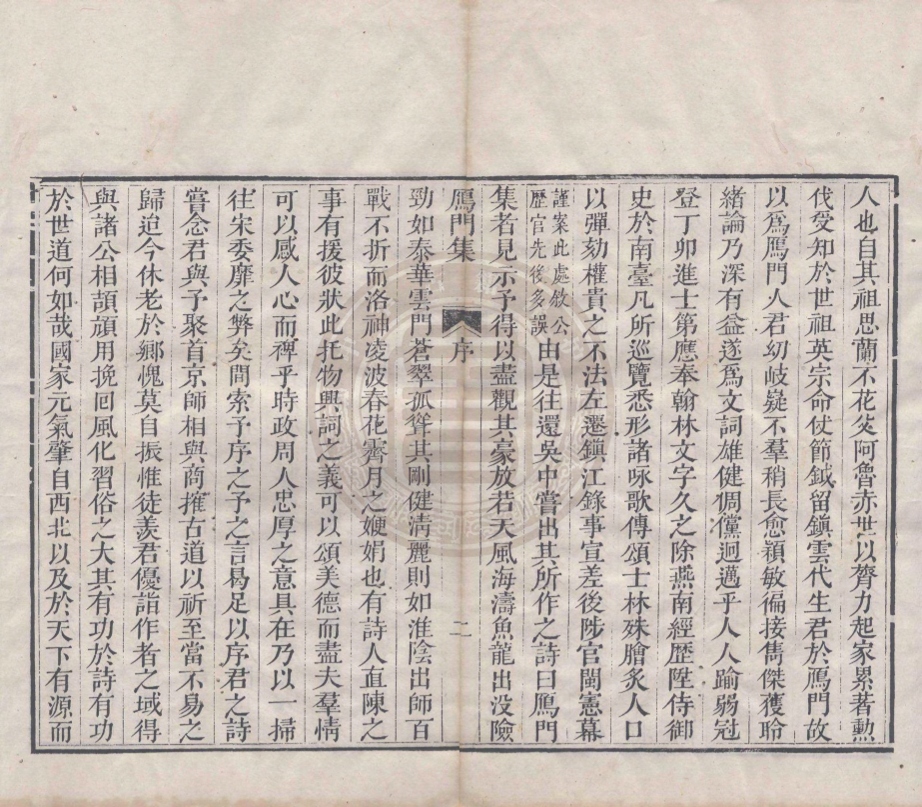 人也自其祖思蘭不花父阿魯赤世以膂力起家累著勳
伐受知於世祖英宗命仗節鉞留鎮雲代生君於鴈門故
以爲鴈門人君幼岐嶷不羣稍長愈穎敏徧接雋傑獲聆
緒論乃深有益遂爲文詞雄健倜儻迥邁乎人人踰弱冠
登丁卯進士第應奉翰林文字久之除燕南經歷陞侍御
史於南臺凡所巡覽悉形諸咏歌傳頌士林殊膾炙人口
以彈劾權貴之不法左遷鎮江錄事宣差後陟官閩憲幕
謹案此處敘公
歷官先後多誤
由是往還吳中嘗出其所作之詩曰鴈門
集者見示予得以盡觀其豪放若天風海濤魚龍出没險
鴈門集
序
二
勁如泰華雲門蒼翠孤聳其剛健清麗則如淮陰出師百
戰不折而洛神凌波春花霽月之㛹娟也有詩人直陳之
事有援彼狀此托物興詞之義可以頌美德而盡夫羣情
可以感人心而裨乎時政周人忠厚之意具在乃以一掃
往宋委靡之弊矣間索予序之予之言曷足以序君之詩
嘗念君與予聚首京師相與商搉古道以祈至當不易之
歸迨今休老於鄉愧莫自振惟徒羨君優詣作者之域得
與諸公相頡頏用挽回風化習俗之大其有功於詩有功
於世道何如哉國家元氣肇自西北以及於天下有源而